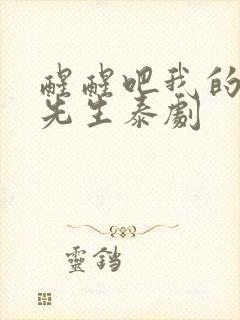 醒醒吧我的
先生泰劇
靈鐺